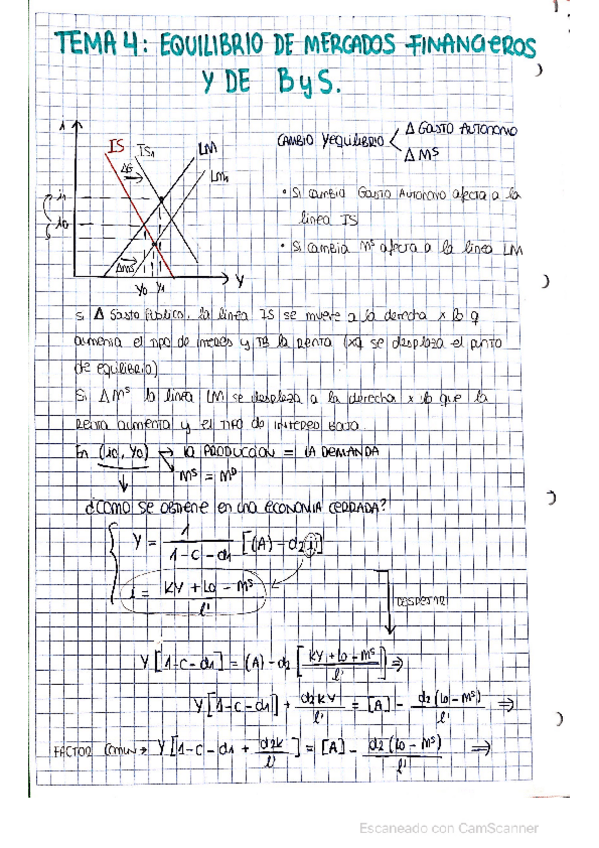 TEMA 4: EQUILIBRIO DE MERCADOS FINANCIEROS
Y DE B y S.
IS IS1 LM
LM1
ΔG
i1
i0
ΔMS
Y0 Y1 Y
CAMBIO Y EQUILIBRIO
Δ GASTO AUTONOMO
Δ MS
• Si cambia Gasto Autonomo afecta a la
linea IS
• Si cambia MS afecta a la linea LM
Si Δ Gasto Publico, la linea IS se mueve a la derecha x lo q
aumenta el tipo de interes y TB la Renta (xq se desplaza el punto
de equilibrio)
Si ΔMS la linea LM se desplaza a la derecha x lo que la
Renta aumenta y el TIPO de INTERES BAJA.
En (i0, Y0) → la PRODUCCION = LA DEMANDA
MS = MD
¿COMO SE OBTIENE EN UNA ECONOMIA CERRADA?
Y = 1 / 1-C-d1 [(A) - d2 i]
i = KY + L0 - MS / l'
DESPEJAR
Y [1-C-d1] = (A) - d2 [KY + L0 - MS / l'] ⇒
Y [1-C-d1] + d2KY / l' = [A] - d2 (L0 - MS) / l' ⇒
FACTOR COMUN → Y [1-C-d1 + d2K / l'] = [A] - d2 (L0 - MS) / l' ⇒
Escaneado con CamScanner